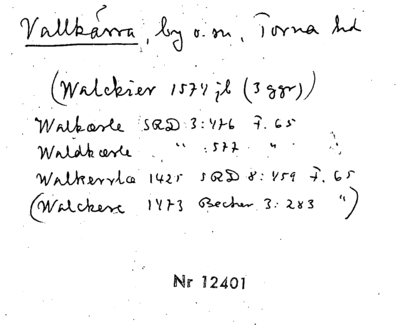 Vallkärra, by o. sn, Torna hd
(Walckier 1574 jb (3 ggr))
Walkærle SRD 3:476 F. 65
Waldkærle " :577 " "
Walkerrla 1425 SRD 8:459 F. 65
(Walckere 1473 Becker 3:283 ")
Nr 12401